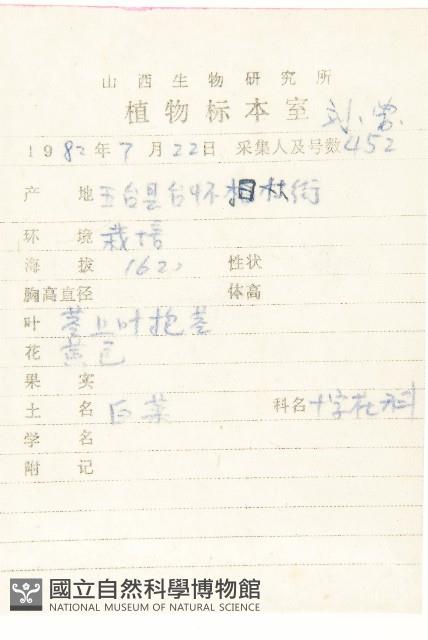 山西生物研究所
植物标本室
1982年7月22日 采集人及号数 刘、常 452
产地 五台县台怀杨林街
环境 栽培
海拔 1620 性状
胸高直径 体高
叶 茎上叶抱茎
花 黄色
果实
土名 白菜 科名 十字花科
学名
附记
國立自然科學博物館
NATIONAL MUSEUM OF NATURAL SCIENCE